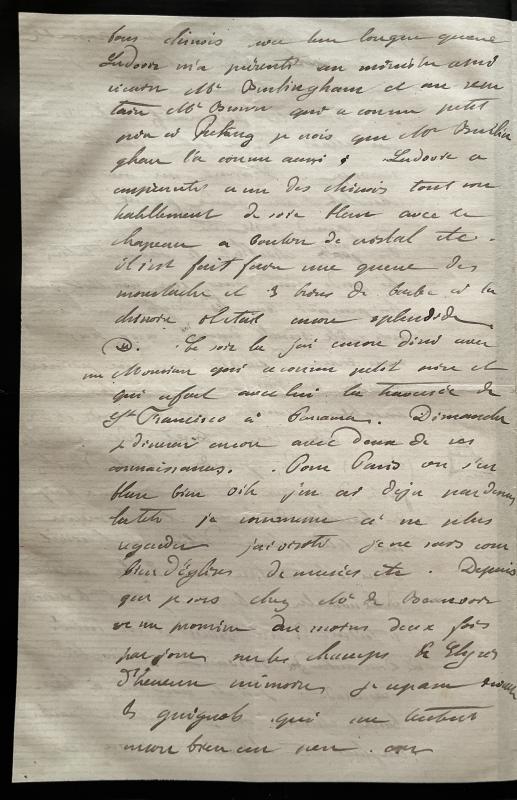 tous chinois avec leur longue queue
Ludovic m'a présenté au ministre amé
ricain Mr Burlingham et au secré
taire Mr Brown qui a connu petit
père à Peking je crois que Mr Burlin
gham l'a connu aussi. Ludovic a
emprunté a un des chinois tout son
habillement de soie bleue avec le
chapeau a bouton de cristal etc.
il s'est fait faire une queue des
moustaches et 3 brins de barbe à la
chinoise il était encore splendide
Le soir là j'ai encore diné avec
un Monsieur qui a connu petit père et
qui a fait avec lui la traversée de
St Francisco à Panama. Dimanche
je dinerai encore avec deux de ses
connaissances. Pour Paris on s'en
blase bien vite j'en ai déja par dessus
la tête je commence à ne plus
regarder j'ai visité je ne sais com
bien d'églises de musées etc. Depuis
que je suis chez Mr de Beauvoir
on me promène au moins deux fois
par jour sur les champs Elysées
d'heureuse mémoire je repasse devant
les guignols qui me tentent
encore bien un peu.